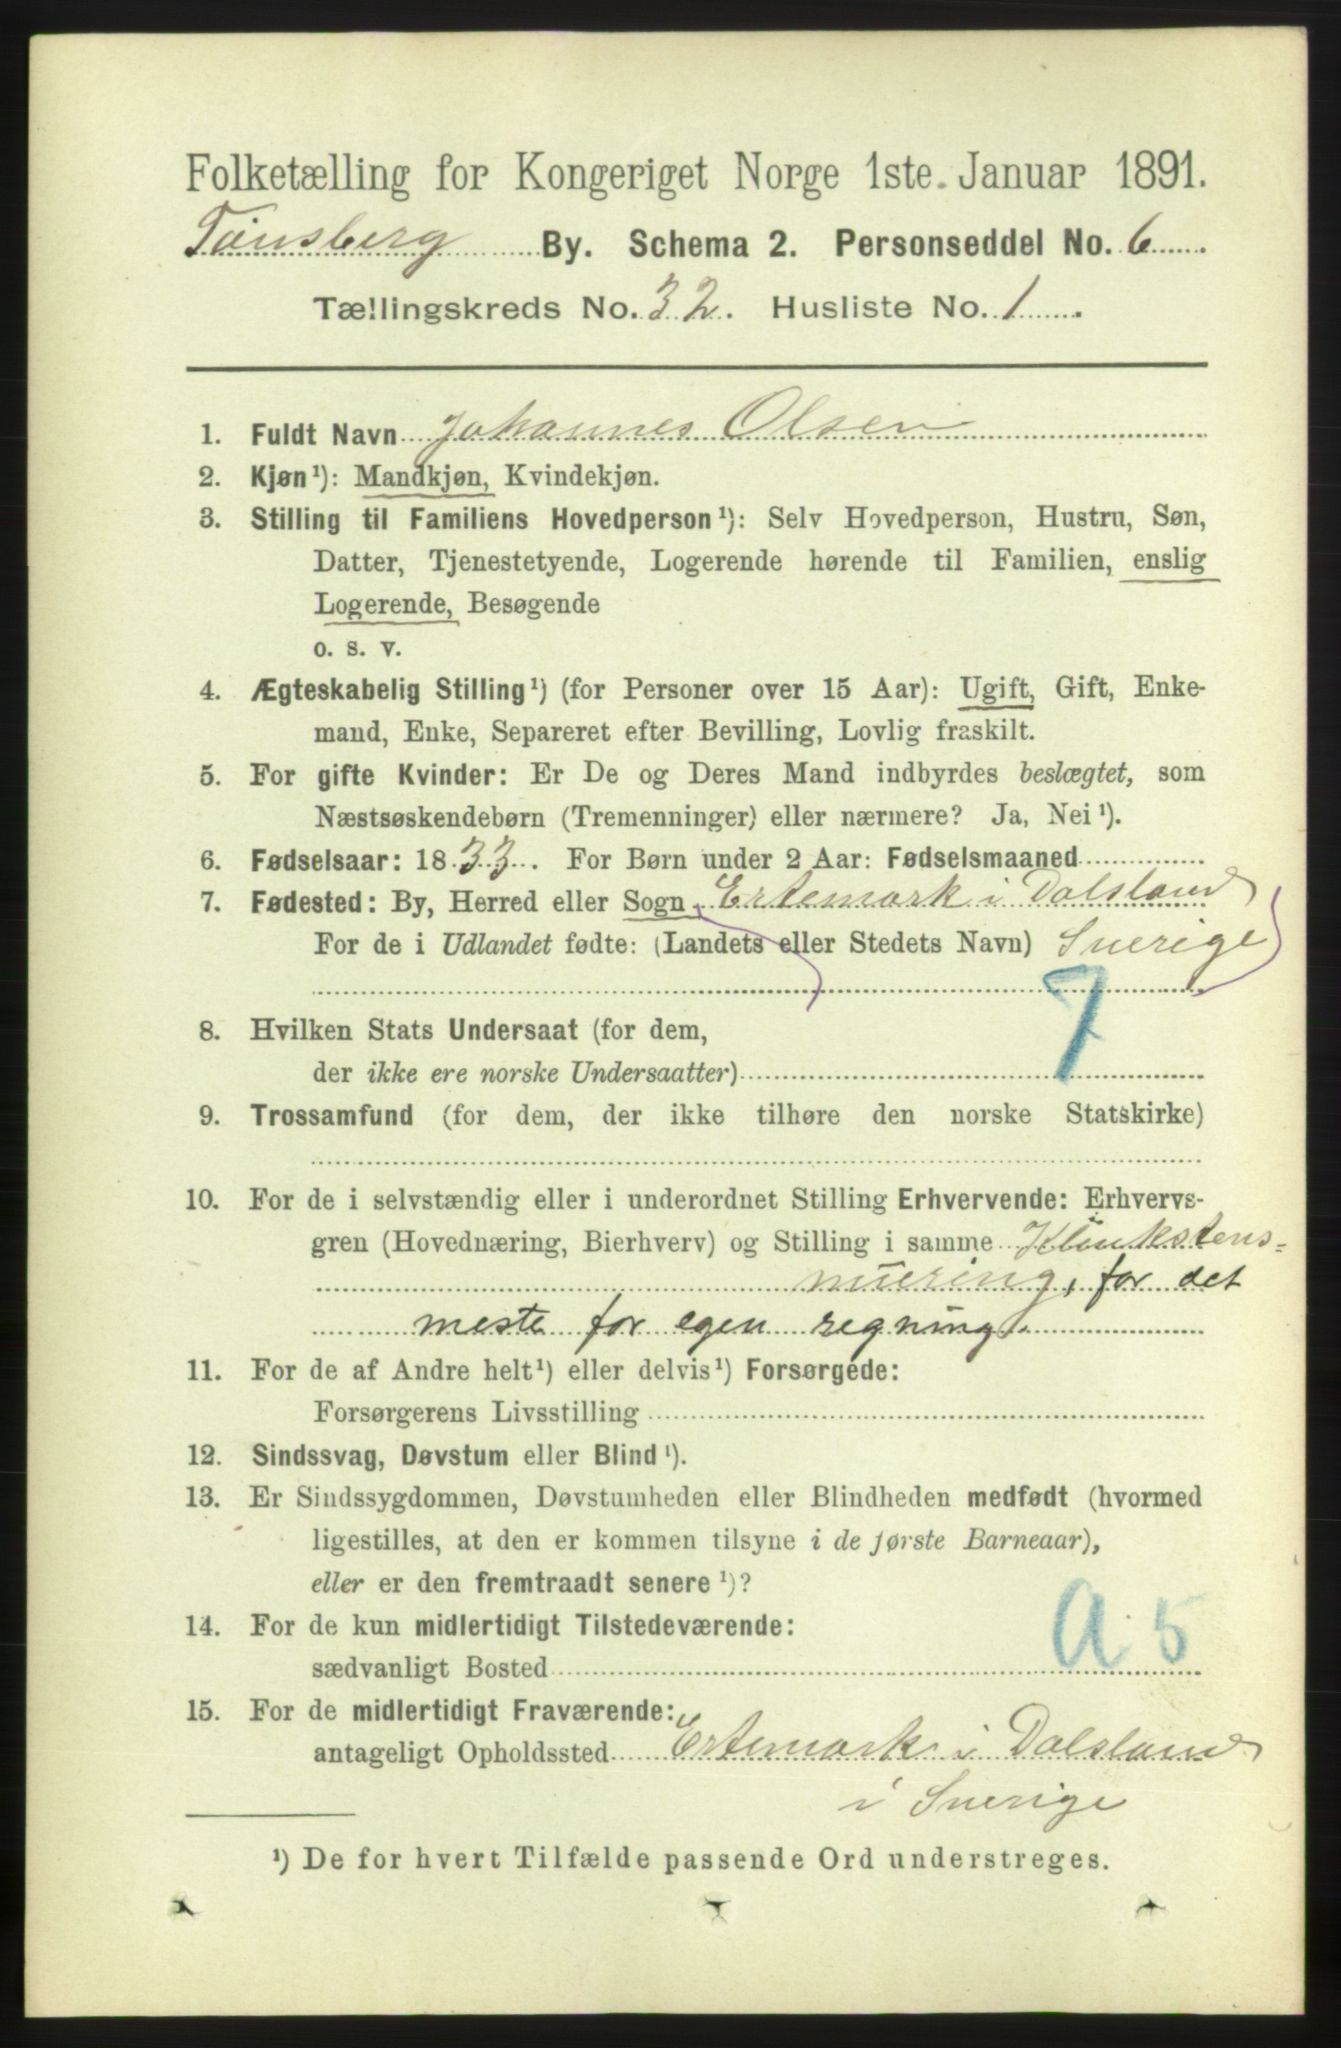 Folketælling for Kongeriget Norge 1ste. Januar 1891.
Tønsberg By. Schema 2. Personseddel No. 6
Tællingskreds No. 32. Husliste No. 1.
1. Fuldt Navn Johannes Olsen
2. Kjøn¹): Mandkjøn, Kvindekjøn.
3. Stilling til Familiens Hovedperson¹): Selv Hovedperson, Hustru, Søn,
Datter, Tjenestetyende, Logerende hørende til Familien, enslig
Logerende, Besøgende
o. s. v.
4. Ægteskabelig Stilling¹) (for Personer over 15 Aar): Ugift, Gift, Enke-
mand, Enke, Separeret efter Bevilling, Lovlig fraskilt.
5. For gifte Kvinder: Er De og Deres Mand indbyrdes beslægtet, som
Næstsøskendebørn (Tremenninger) eller nærmere? Ja, Nei¹).
6. Fødselsaar: 1833. For Børn under 2 Aar: Fødselsmaaned
7. Fødested: By, Herred eller Sogn Ertemark i Dalsland
For de i Udlandet fødte: (Landets eller Stedets Navn) Sverige
7
8. Hvilken Stats Undersaat (for dem,
der ikke ere norske Undersaatter)
9. Trossamfund (for dem, der ikke tilhøre den norske Statskirke)
10. For de i selvstændig eller i underordnet Stilling Erhvervende: Erhvervs-
gren (Hovednæring, Bierhverv) og Stilling i samme Klinkstens-
muering, for det
meste for egen regning.
11. For de af Andre helt¹) eller delvis¹) Forsørgede:
Forsørgerens Livsstilling
12. Sindssvag, Døvstum eller Blind¹).
13. Er Sindssygdommen, Døvstumheden eller Blindheden medfødt (hvormed
ligestilles, at den er kommen tilsyne i de første Barneaar),
eller er den fremtraadt senere¹)?
14. For de kun midlertidigt Tilstedeværende:
sædvanligt Bosted
a 5
15. For de midlertidigt Fraværende:
antageligt Opholdssted Ertemark i Dalsland
i Sverige
¹) De for hvert Tilfælde passende Ord understreges.